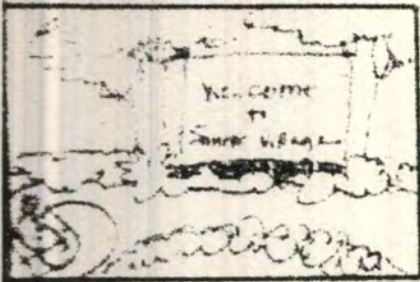 Welcome
to
Village